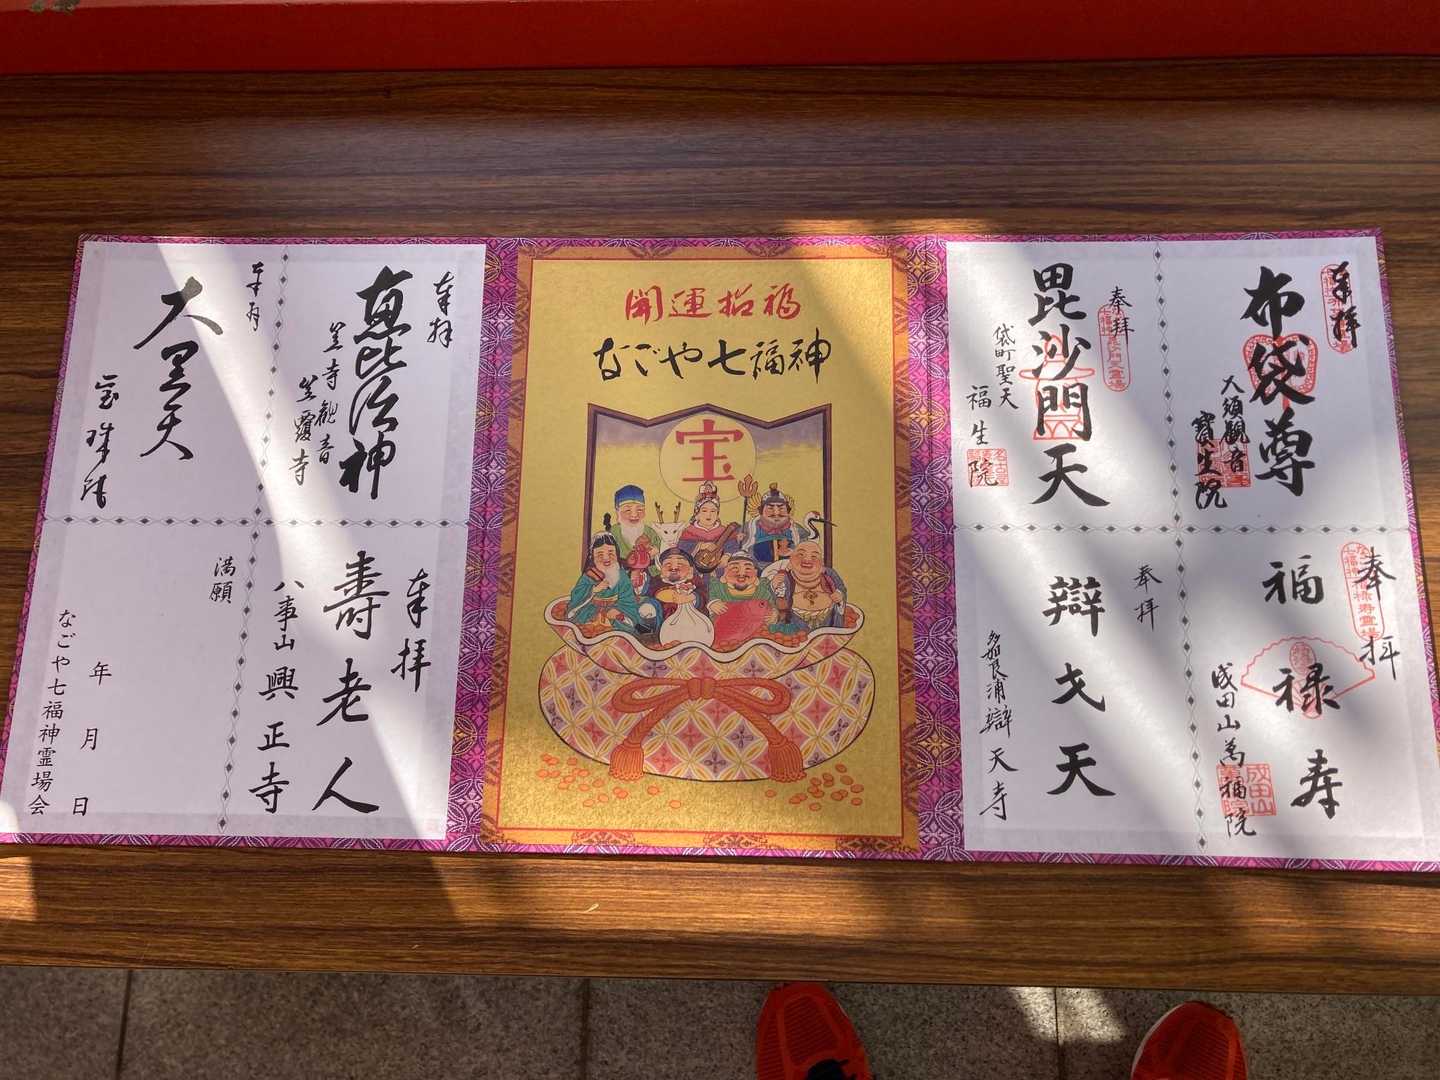 奉拝
布袋尊
大須観音
寳生院
奉拝
毘沙門天
袋町聖天
福生院
奉拝
福禄寿
成田山萬福院
成田山
萬福院
奉拝
辯戈天
嘉良浦辯天寺
開運招福
なごや七福神
宝
奉拝
恵比須神
笠寺観音
笠覆寺
奉拝
大黒天
宝珠院
奉拝
壽老人
八事山興正寺
満願
年月日
なごや七福神霊場会